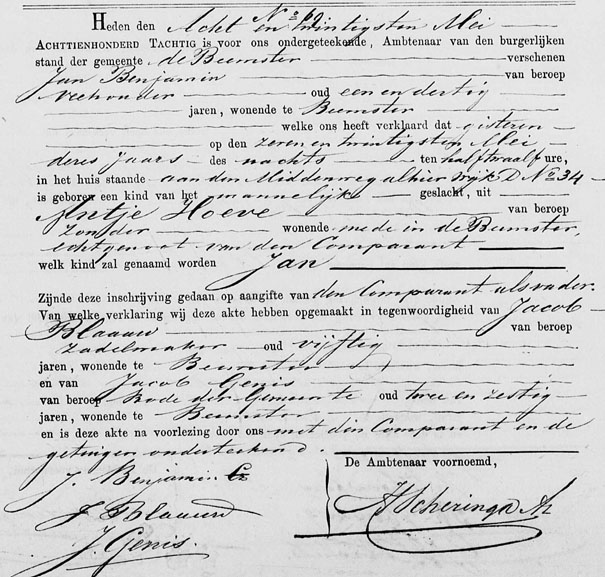 No 69
Heden den Acht en twintigsten Mei
ACHTTIENHONDERD TACHTIG is voor ons ondergeteekende, Ambtenaar van den burgerlijken
stand der gemeente de Beemster verschenen
Jan Benjamin van beroep
Veehouder oud een en dertig
jaren, wonende te Beemster
welke ons heeft verklaard dat gisteren
op den zeven en twintigsten Mei
dezes jaars des nachts ten half twaalf ure,
in het huis staande aan den Middenweg alhier Wijk D No 34
is geboren een kind van het mannelijke geslacht, uit
Antje Hoeve van beroep
zonder wonende mede in de Beemster,
echtgenoot van den Comparant
welk kind zal genaamd worden Jan
Zijnde deze inschrijving gedaan op aangifte van den Comparant als vader.
Van welke verklaring wij deze akte hebben opgemaakt in tegenwoordigheid van Jacob
Blaauw van beroep
zadelmaker oud vijftig
jaren, wonende te Beemster
en van Jacob Genis
van beroep Bode der Gemeente oud twee en zestig
jaren, wonende te Beemster
en is deze akte na voorlezing door ons met den Comparant en de
getuigen onderteekend.
De Ambtenaar voornoemd,
J. Benjamin
J Blaauw
J. Genis.
AScheringa Az